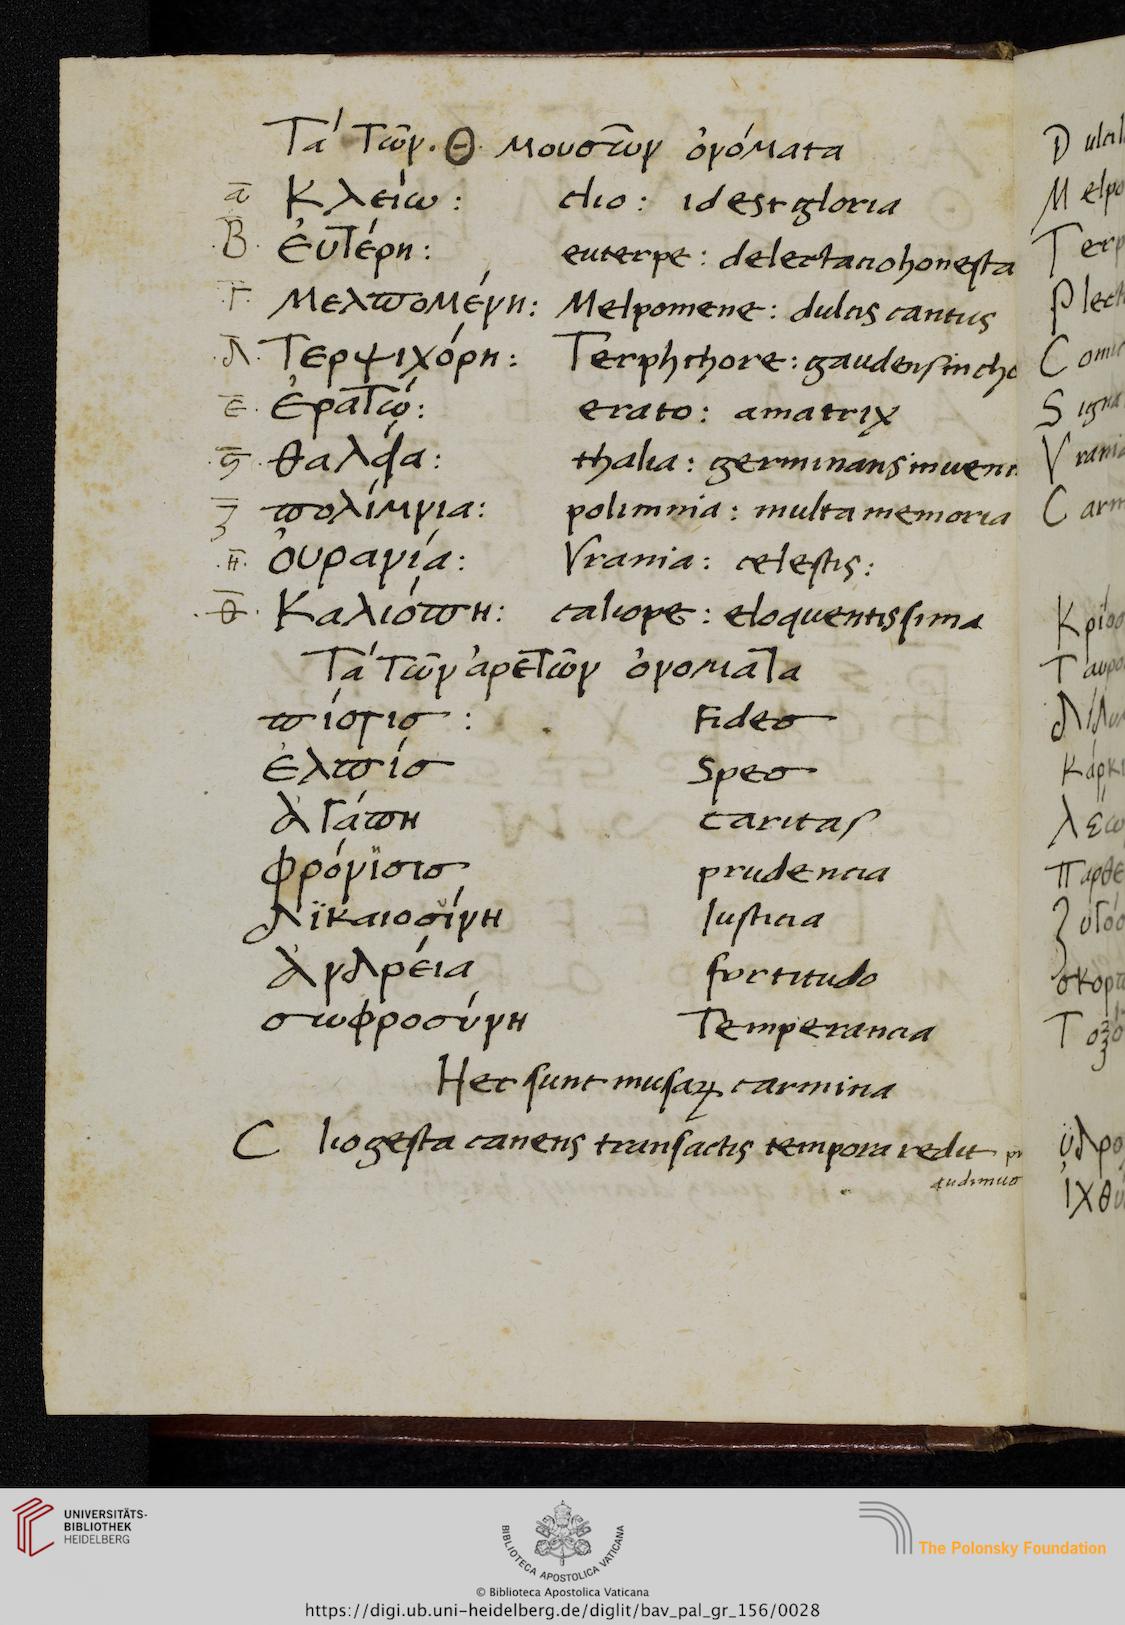 Τά τῶν. Θ. μουσῶν ὀνόματα
α Κλείω: clio: id est gloria
.Β. ἐυτέρη: euterpe: delectacio honesta
.Γ. Μελπομένη: Melpomene: dulcis cantus
.Δ. Τερψιχόρη: Terphchore: gaudens in cho
Ε. ἐρατώ: erato: amatrix
.ς. θαλία: thalia: germinans
ζ πολίμνια: polimnia: multa memoria
.Η. ὀυρανία: Vrania: celestis:
.θ. Καλιόπη: caliope: eloquentissima
Τά τῶν ἀρετῶν ὀνοματα
πίστισ: Fides
ἐλπίσ Spes
ἀγάπη caritas
φρόνϊσισ prudencia
Δϊκαιοσίνη Iusticia
ἀνδρεία fortitudo
σωφροσύνη Temperancia
Hec sunt musaꝝ carmina
Clio gesta canens transactis tempora redit
audimus
Melpo
Terp
Plect
Comic
Signa
Vrania
Carm
Κριοσ
Ταυρο
Διδυ
κάρκι
λέω
παρθε
ζυγόσ
σκορπ
Τοξο
ϋδρο
ἰχθύ
UNIVERSITÄTS-
BIBLIOTHEK
HEIDELBERG
BIBLIOTECA APOSTOLICA VATICANA
The Polonsky Foundation
© Biblioteca Apostolica Vaticana
https://digi.ub.uni-heidelberg.de/diglit/bav_pal_gr_156/0028